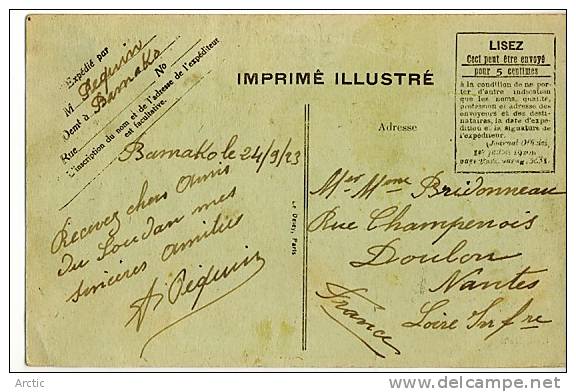 Expédié par
M Pequin
Demt à Bamako
Rue No
L'inscription du nom et de l'adresse de l'expéditeur
est facultative.
IMPRIMÉ ILLUSTRÉ
LISEZ
Ceci peut être envoyé
pour 5 centimes
à la condition de ne por-
ter d'autre indication
que les noms, qualité,
profession et adresse des
envoyeurs et des desti-
nataires, la date d'expé-
dition et la signature de
l'expéditeur.
(Journal Officiel,
Adresse
Bamako le 24/9/23
Recevez chers amis
du Soudan mes
sincères amitiés
Pequin
Paris
Mer Mme Bridonneau
Rue Champenois
Doulon
Nantes
Loire Infre
France
Arctic
delcampe.net